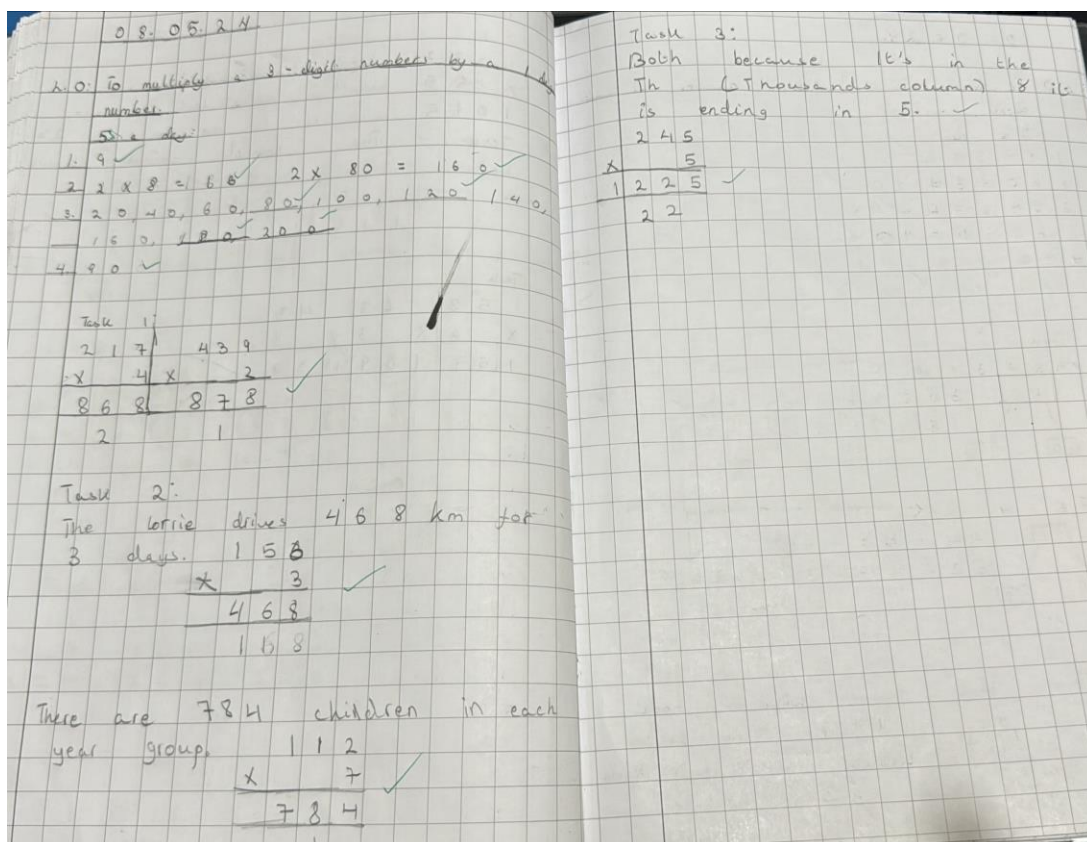 08.05.24
L.O: To multiply a 3-digit numbers by a 1 d
number
5 a day
1. 9
2 2 x 8 = 16 2 x 80 = 160
3. 20, 40, 60, 80, 100, 120 140,
160, 180, 200
4. 90
Task 1:
217 439
x 4 x 2
868 878
2 1
Task 2:
The lorrie drives 468 km for
3 days. 156
x 3
468
1
There are 784 children in each
year group. 112
x 7
784
1
Task 3:
Both because It's in the
Th (Thousands column) & it
is ending in 5.
245
x 5
1225
22